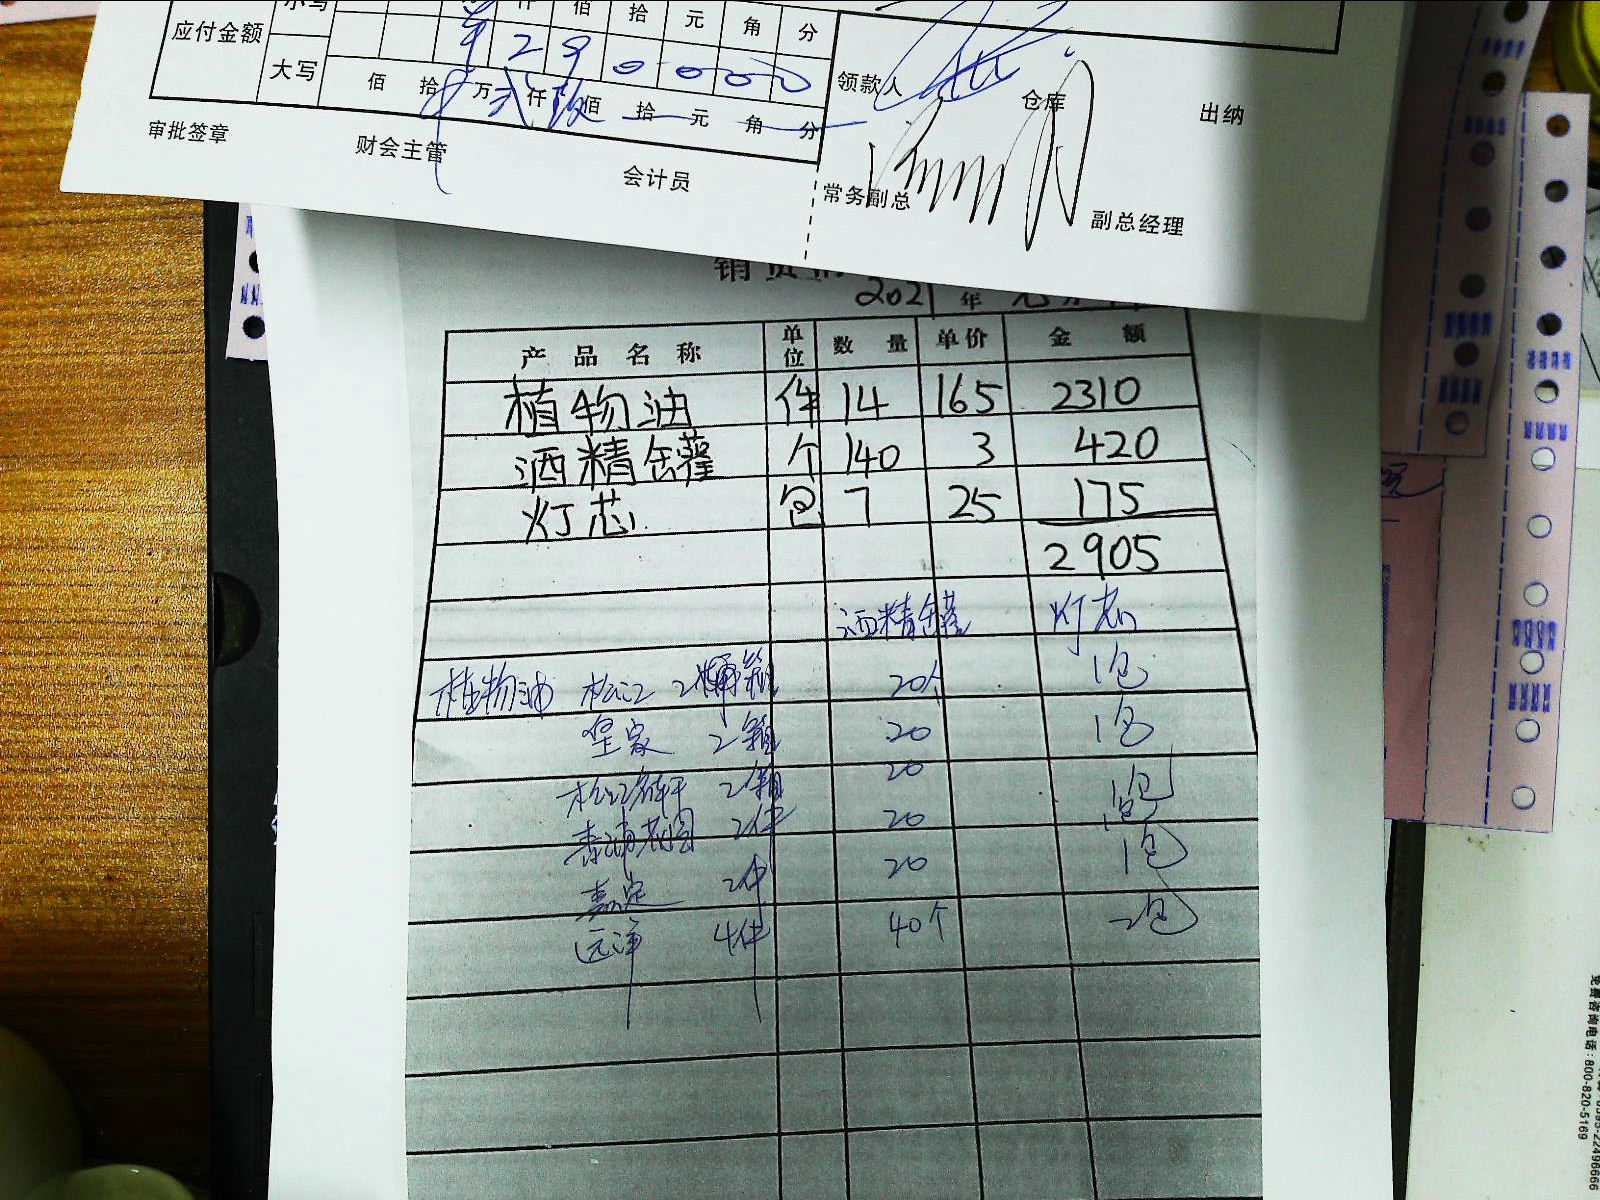 应付金额
元 角 分
佰 拾
¥ 2 9 0 0 0 0
大写 佰 拾 万 贰 仟 玖 佰 拾 元 角 分
领款人 仓库 出纳
审批签章 财会主管 会计员 常务副总 副总经理
销货
2021 年
产品名称 单位 数量 单价 金额
植物油 件 14 165 2310
酒精仓罐 个 140 3 420
灯芯 包 7 25 175
2905
灯芯
植物油 松江 2 箱 20个 1包
皇家 2箱 20 1包
2箱 20 1包
2件 20 1包
嘉定 2件 20 1包
远洋 4件 40个 2包
免费咨询电话:800-820-5169